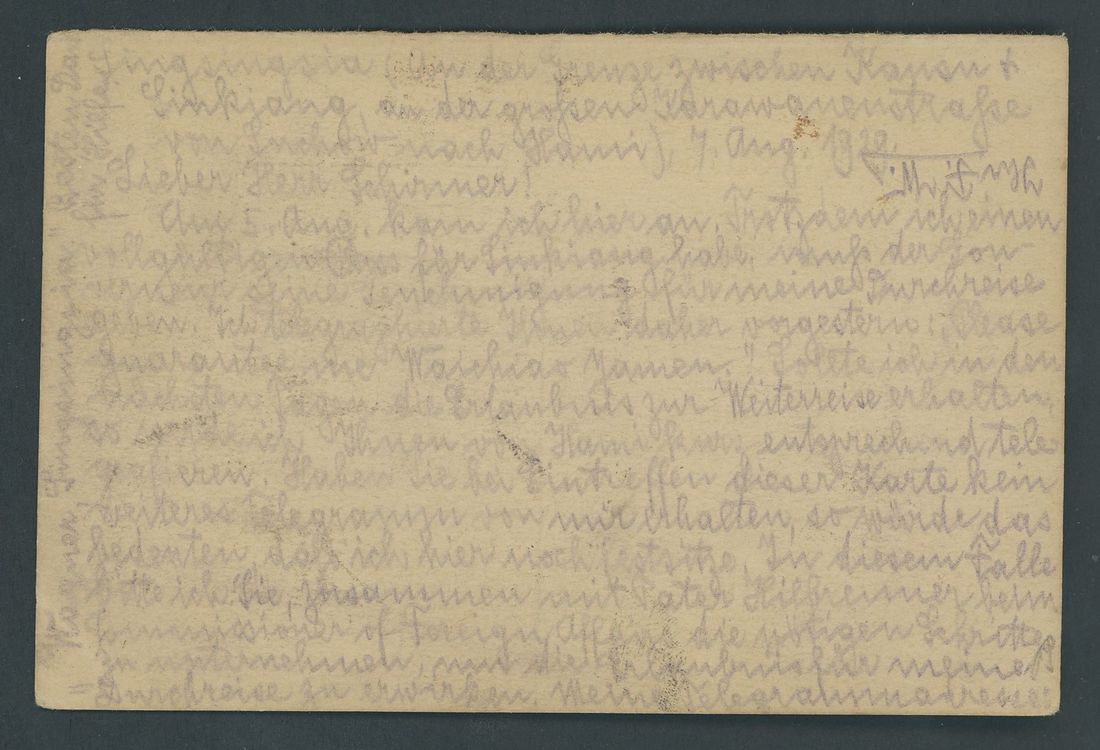 Singsingsia (An der Grenze zwischen Kansu +
Sinkjang, an der großen Karawanenstraße
von Suchow nach Hami), 7. Aug. 1929.
Lieber Herr Schirmer!
Am 5. Aug. kam ich hier an. Trotzdem ich einen
vollgültigen Pass für Sinkiang habe, muß der Gou-
verneur seine Genehmigung für meine Durchreise
geben. Ich telegraphierte Ihnen daher vorgestern: „Please
guarantee me Waichiao Yamen." Sollte ich in den
nächsten Tagen die Erlaubnis zur Weiterreise erhalten,
so werde ich Ihnen von Hami kurz entsprechend tele
grafieren. Haben Sie bei Eintreffen dieser Karte kein
weiteres Telegramm von mir erhalten, so würde das
bedeuten, daß ich hier noch festsitze. In diesem Falle
bitte ich Sie, zusammen mit Pater Hilbrenner beim
Commissioner of Foreign Affairs die nötigen Schritte
zu unternehmen, um die Erlaubnis für meine
Durchreise zu erwirken. Meine Telegrammadresse
für